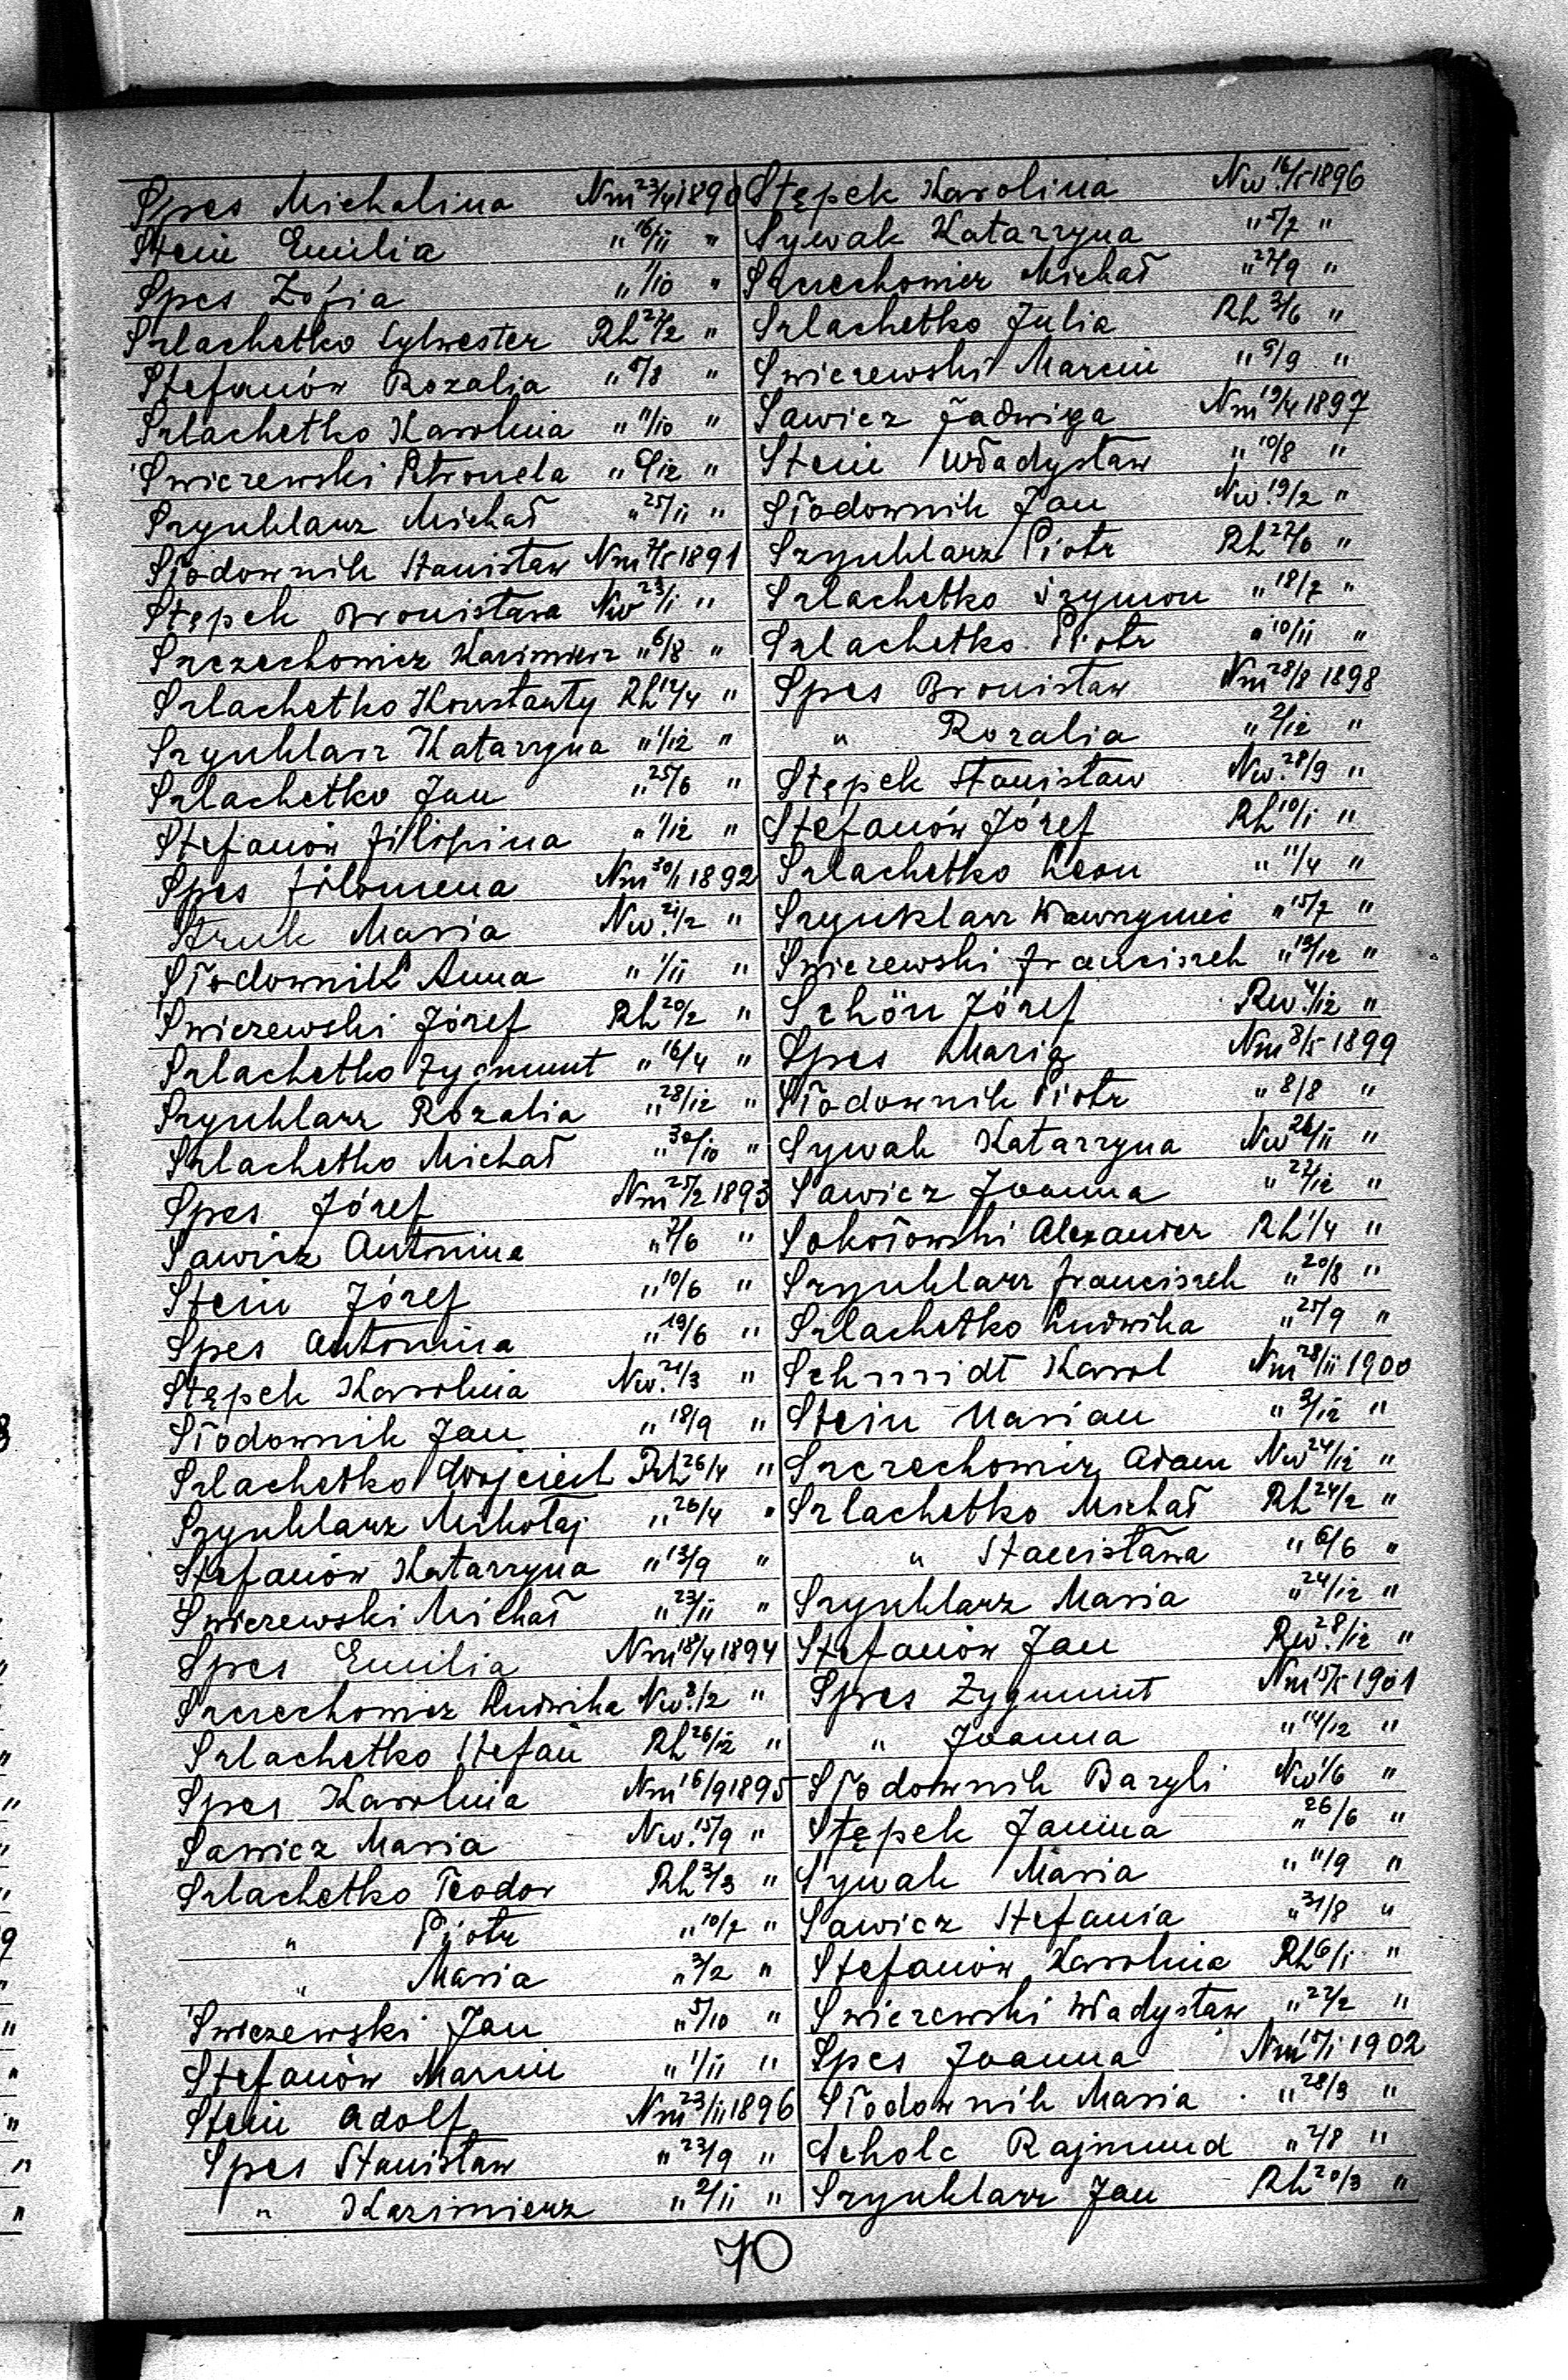 Spes Michalina Nm 23/4 1890
Stein Emilia " 16/11 "
Spes Zofia " 1/10 "
Szlachetko Sylwester Rh 27/2 "
Stefanów Rozalia " /8 "
Szlachetko Karolina " 11/10 "
Swiczewski Petronela " 9/12 "
Szynklarz Michał " 25/11 "
Słodownik Stanisław Nm /5 1891
Stępek Bronisława Nw 23/1 "
Szczechowicz Kazimierz " 6/8 "
Szlachetko Konstanty Rh 12/4 "
Szynklarz Katarzyna " 1/12 "
Szlachetko Jan " 25/6 "
Stefanów Filipina " 1/12 "
Spes Filomena Nm 30/1 1892
Struk Maria Nw. 21/2 "
Słodownik Anna " 1/11 "
Swiczewski Józef Rh 20/2 "
Szlachetko Zygmunt " 16/4 "
Szynklarz Rozalia " 28/12 "
Szlachetko Michał " 30/10 "
Spes Józef Nm 25/2 1893
Sawicz Antonina " 2/6 "
Stein Józef " 10/6 "
Spes Antonina " 19/6 "
Stępek Karolina Nw. 21/3 "
Słodownik Jan " 18/9 "
Szlachetko Wojciech Rh 26/4 "
Szynklarz Mikołaj " 26/4 "
Stefanów Katarzyna " 13/9 "
Swiczewski Michał " 23/11 "
Spes Emilia Nm 18/4 1894
Szczechowicz Ludwika Nw. 2/2 "
Szlachetko Stefan Rh 26/12 "
Spes Karolina Nm 16/9 1895
Sawicz Maria Nw. 15/9 "
Szlachetko Teodor Rh 2/3 "
" Piotr " 10/7 "
" Maria " 3/2 "
Swiczewski Jan " 5/10 "
Stefanów Marcin " 1/11 "
Stein Adolf Nm 23/11 1896
Spes Stanisław " 23/9 "
" Kazimierz " 2/11 "
Stępek Karolina Nw. 16/5 1896
Sywak Katarzyna " 5/7 "
Szczechowicz Michał " 27/9 "
Szlachetko Julia Rh 3/6 "
Swiczewski Marcin " 9/9 "
Sawicz Jadwiga Nm 19/4 1897
Stein Władysław " 10/8 "
Słodownik Jan Nw. 19/2 "
Szynklarz Piotr Rh 27/6 "
Szlachetko Szymon " 18/7 "
Szlachetko Piotr " 10/11 "
Spes Bronisław Nm 28/8 1898
" Rozalia " 2/12 "
Stępek Stanisław Nw. 28/9 "
Stefanów Józef Rh 10/1 "
Szlachetko Leon " 11/4 "
Szynklarz Wawrzyniec " 15/7 "
Swiczewski Franciszek " 13/12 "
Schön Józef Rw. 4/12 "
Spes Maria Nm 8/5 1899
Słodownik Piotr " 8/8 "
Sywak Katarzyna Nw 26/11 "
Sawicz Joanna " 27/12 "
Sokołowski Alexander Rh 1/4 "
Szynklarz Franciszek " 20/8 "
Szlachetko Ludwika " 25/9 "
Schmidt Karol Nm 28/11 1900
Stein Marian " 3/12 "
Szczechowicz Adam Nw 24/12 "
Szlachetko Michał Rh 24/2 "
" Stanisława " 6/6 "
Szynklarz Maria " 24/12 "
Stefanów Jan Rw. 28/12 "
Spes Zygmunt Nm 15/5 1901
" Joanna " 14/12 "
Słodownik Bazyli Nw 1/6 "
Stępek Janina " 26/6 "
Sywak Maria " 11/9 "
Sawicz Stefania " 31/8 "
Stefanów Karolina Rh 6/1 "
Swiczewski Władysław " 22/2 "
Spes Joanna Nm 15/1 1902
Słodownik Maria " 28/3 "
Scholc Rajmund " 2/8 "
Szynklarz Jan Rh 20/3 "
70